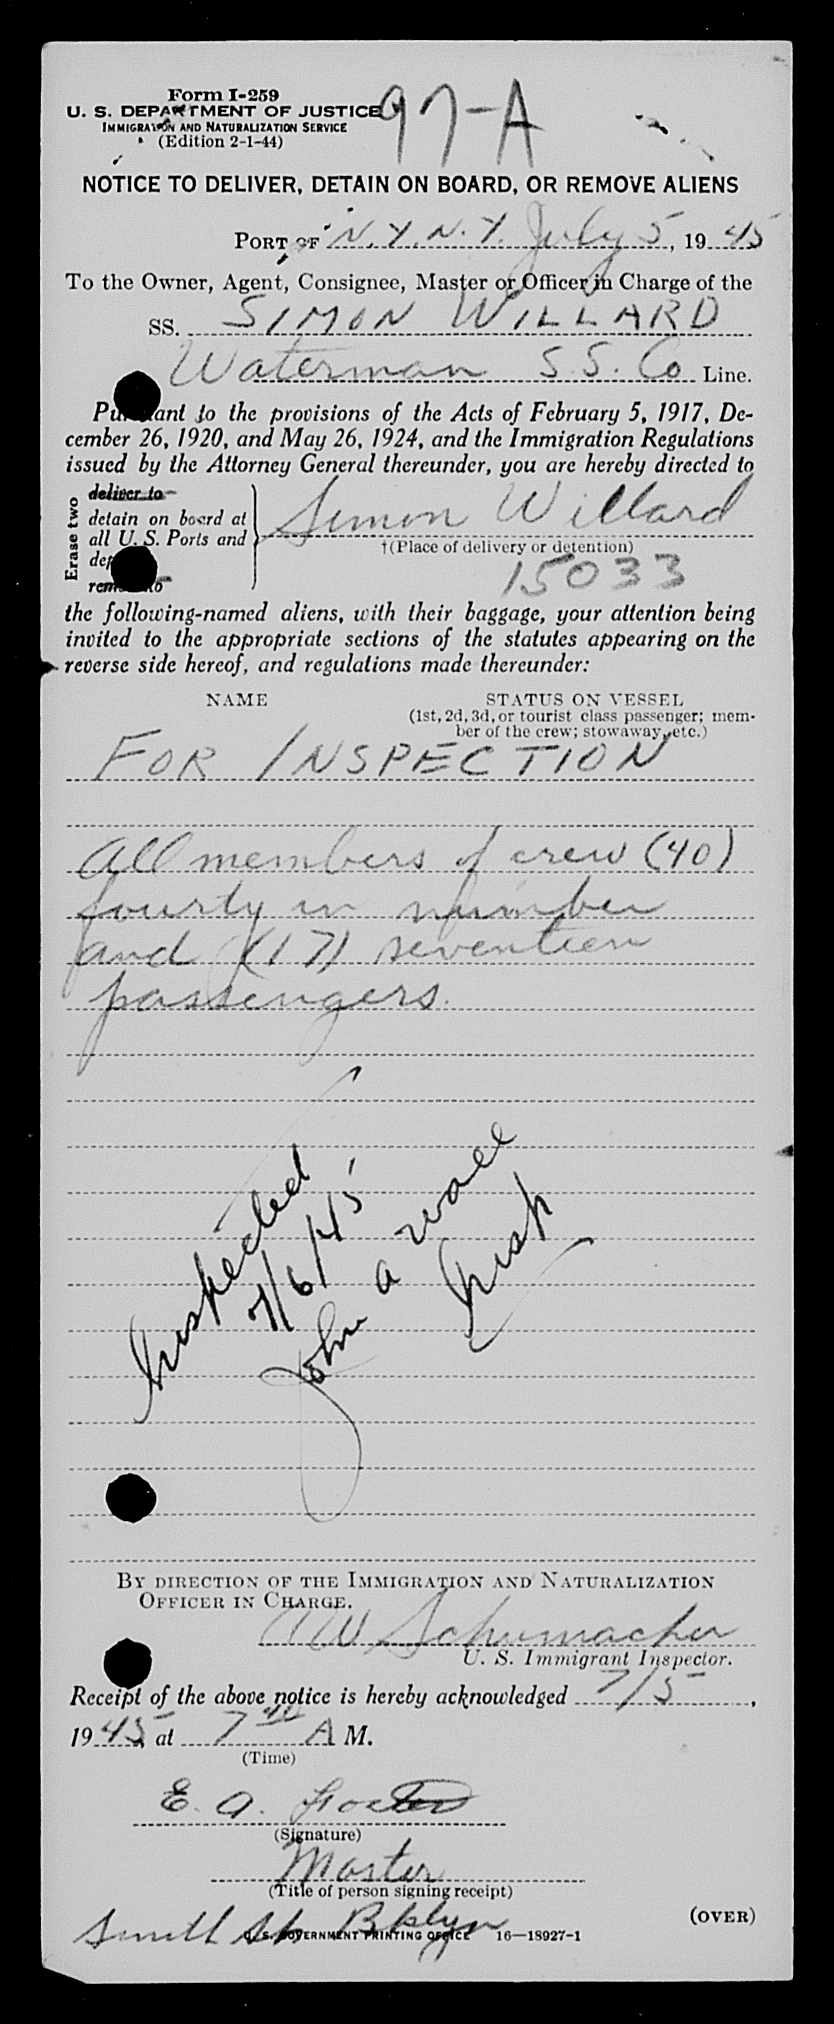 Form I-259
U. S. DEPARTMENT OF JUSTICE
97-A
IMMIGRATION AND NATURALIZATION SERVICE
(Edition 2-1-44)
NOTICE TO DELIVER, DETAIN ON BOARD, OR REMOVE ALIENS
PORT OF N.Y. N.Y. July 5, 1945
To the Owner, Agent, Consignee, Master or Officer in Charge of the
SS. SIMON WILLARD
Waterman S.S. Co Line.
Pursuant to the provisions of the Acts of February 5, 1917, De-
cember 26, 1920, and May 26, 1924, and the Immigration Regulations
issued by the Attorney General thereunder, you are hereby directed to
Erase two
deliver to
detain on board at
all U. S. Ports and
remove to
Simon Willard
†(Place of delivery or detention)
15033
the following-named aliens, with their baggage, your attention being
invited to the appropriate sections of the statutes appearing on the
reverse side hereof, and regulations made thereunder:
NAME STATUS ON VESSEL
(1st, 2d, 3d, or tourist class passenger; mem-
ber of the crew; stowaway, etc.)
FOR INSPECTION
All members of crew (40)
fourty in number
and (17) seventeen
passengers.
Inspected
7/6/45
John A Wall
Insp
BY DIRECTION OF THE IMMIGRATION AND NATURALIZATION
OFFICER IN CHARGE.
AW Schumacher
U. S. Immigrant Inspector.
Receipt of the above notice is hereby acknowledged 7/5,
1945 at 7 40 A M.
(Time)
E. A.
(Signature)
Master
(Title of person signing receipt)
Smith St Bklyn
(OVER)
U. S. GOVERNMENT PRINTING OFFICE 16—18927-1